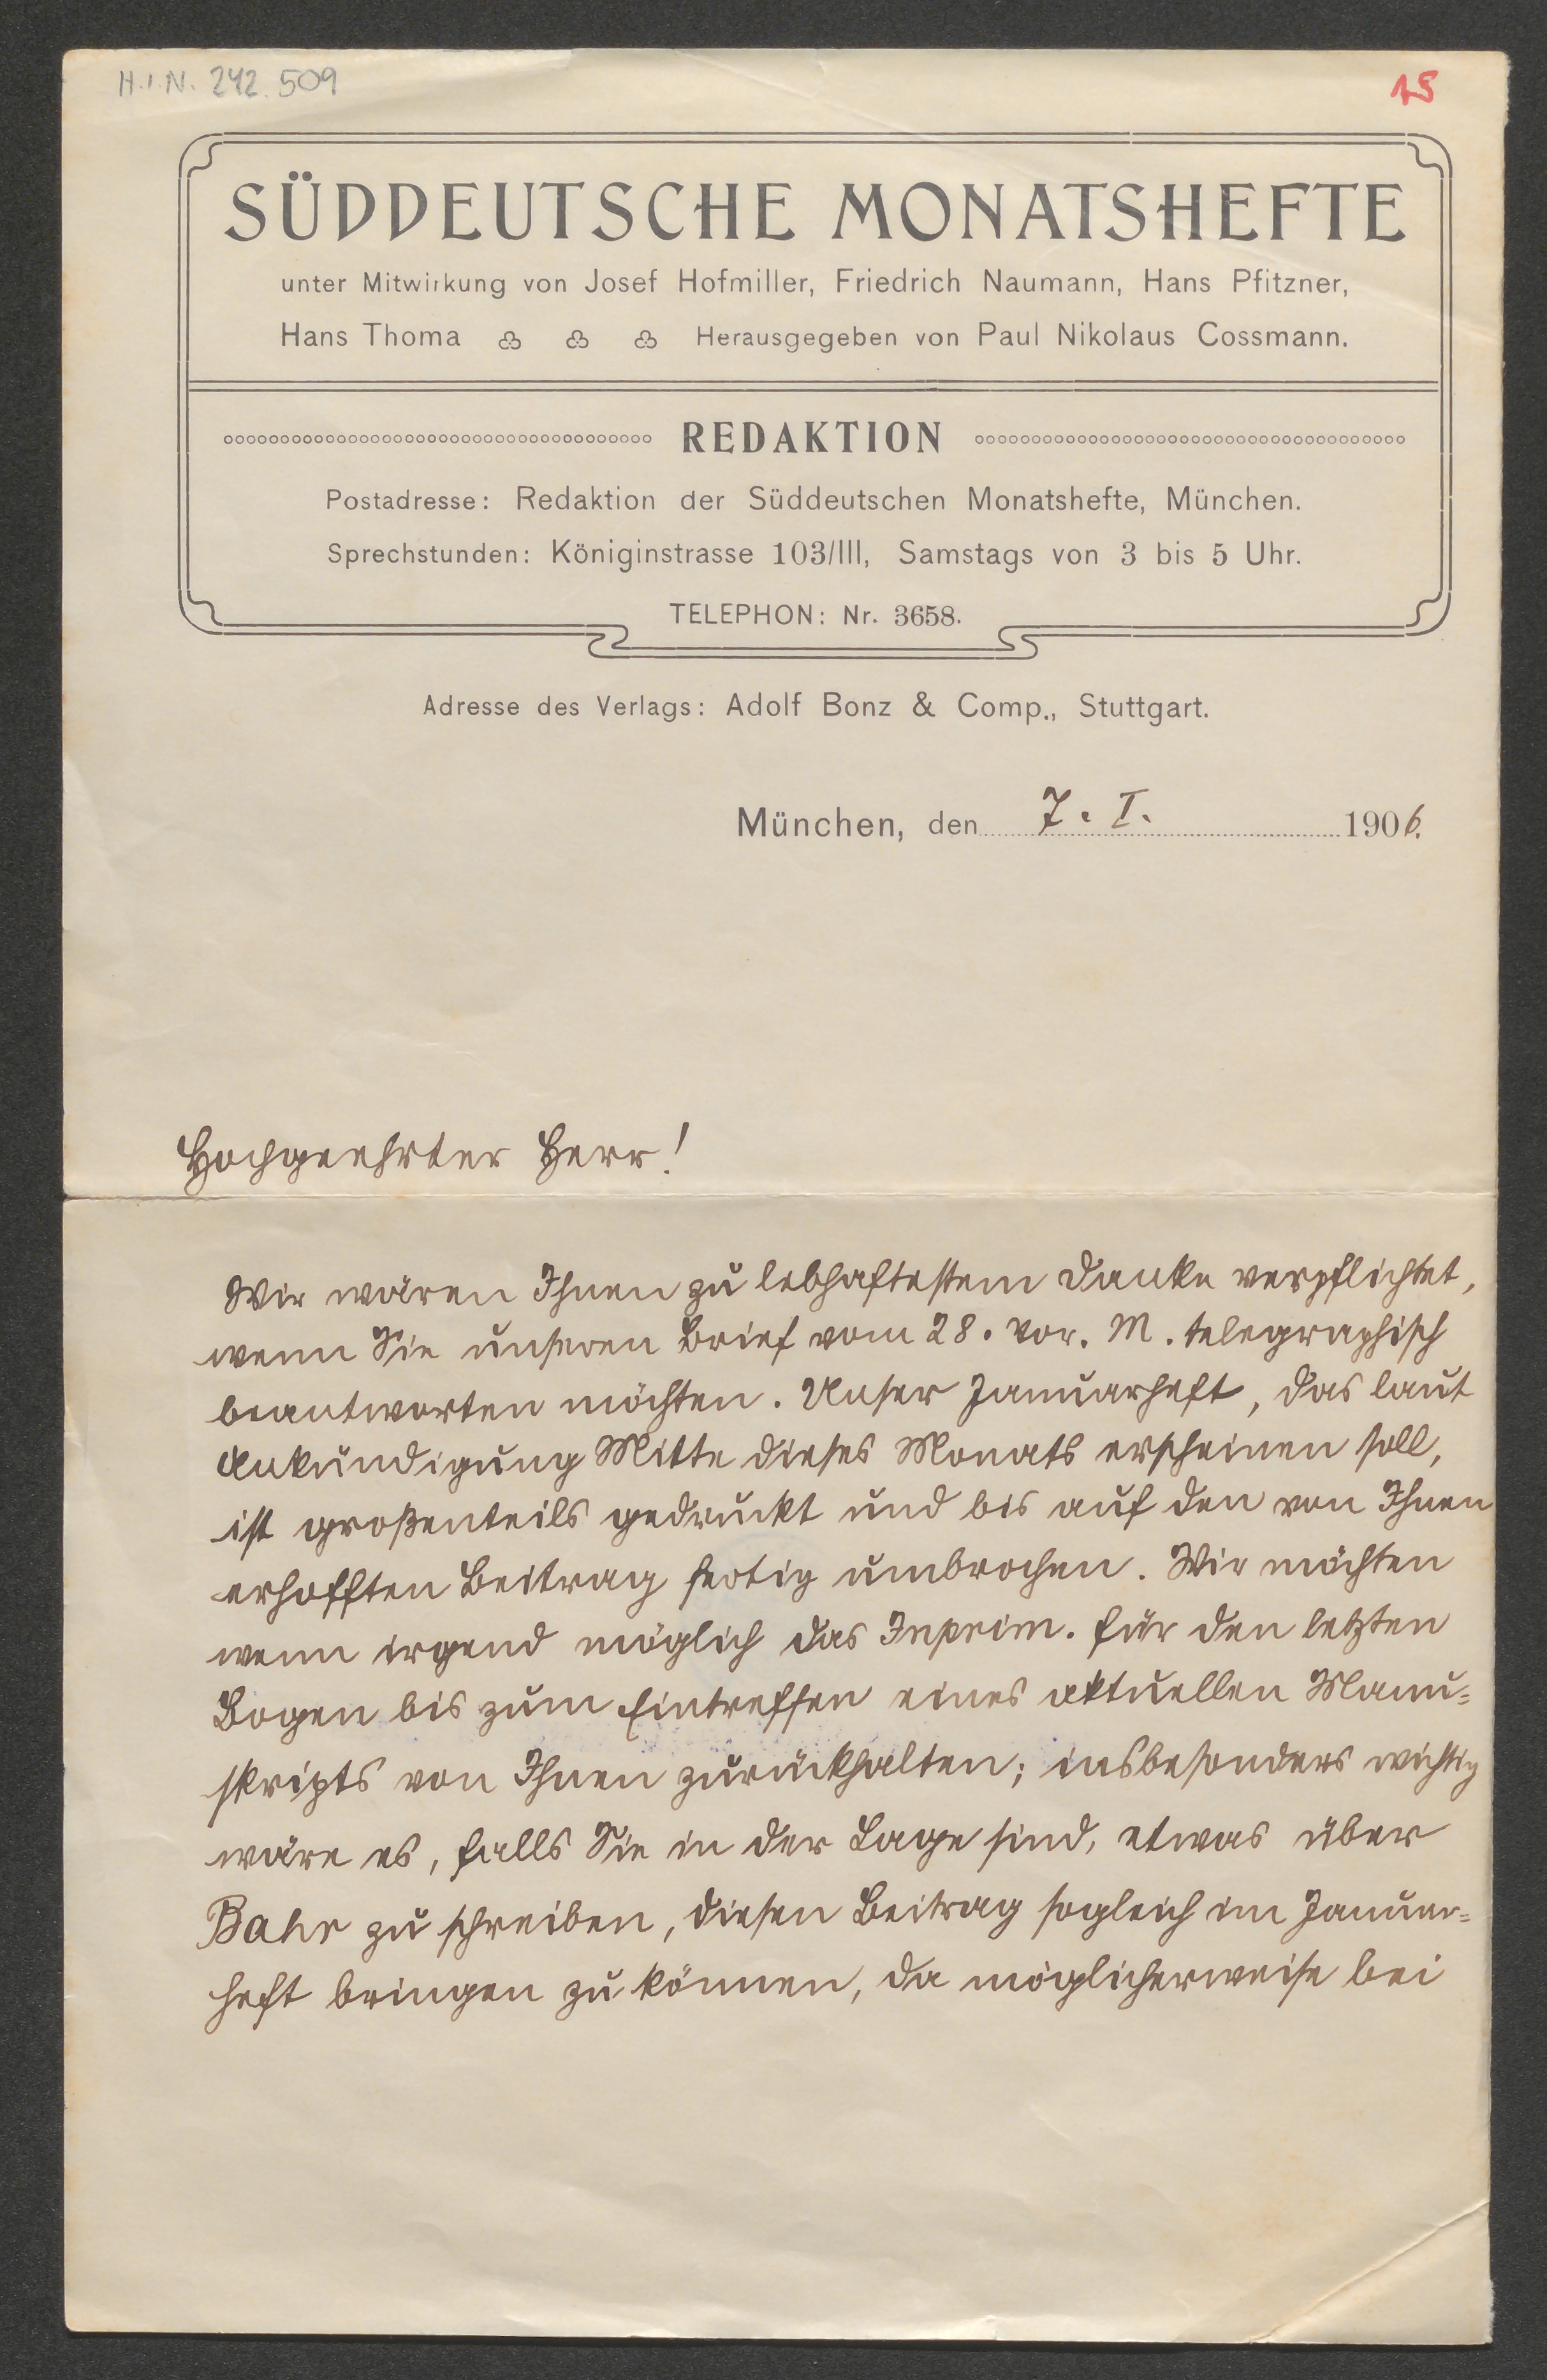 H.I.N. 242.509
15
SÜDDEUTSCHE MONATSHEFTE
unter Mitwirkung von Josef Hofmiller, Friedrich Naumann, Hans Pfitzner,
Hans Thoma Herausgegeben von Paul Nikolaus Cossmann.
REDAKTION
Postadresse: Redaktion der Süddeutschen Monatshefte, München.
Sprechstunden: Königinstrasse 103/III, Samstags von 3 bis 5 Uhr.
TELEPHON: Nr. 3658.
Adresse des Verlags: Adolf Bonz & Comp., Stuttgart.
München, den 7. I. 1906.
Hochgeehrter Herr!
Wir wären Ihnen zu lebhaftestem Danke verpflichtet,
wenn Sie unseren Brief vom 28. vor. M. telegraphisch
beantworten möchten. Unser Januarheft, das laut
Ankündigung Mitte dieses Monats erscheinen soll,
ist großenteils gedruckt und bis auf den von Ihnen
erhofften Beitrag fertig umbrochen. Wir möchten
wenn irgend möglich das Inprim. für den letzten
Bogen bis zum Eintreffen eines aktuellen Manu=
skripts von Ihnen zurückhalten; insbesonders wichtig
wäre es, falls Sie in der Lage sind, etwas über
Bahr zu schreiben, diesen Beitrag sogleich im Januar=
heft bringen zu können, da möglicherweise bei